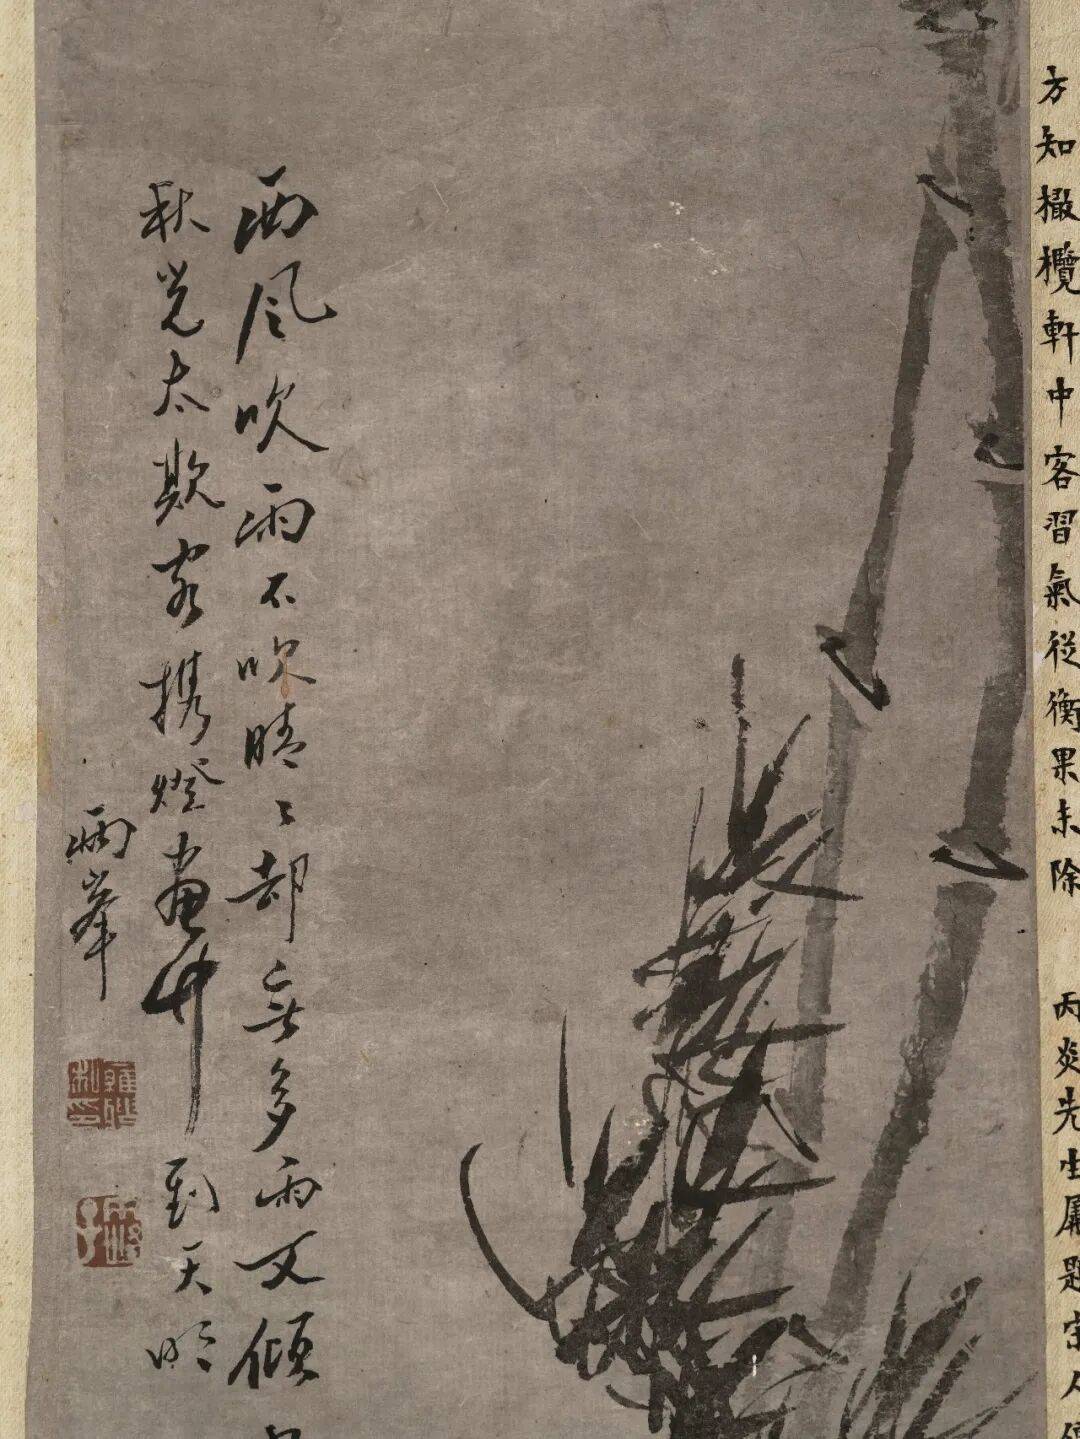 方知橄欖軒中客習氣從衡果未除 丙炎先生屬題宋人
西風吹雨不吹晴〻却無多雨又傾
秋光太欺客携燈畫竹到天明
峯